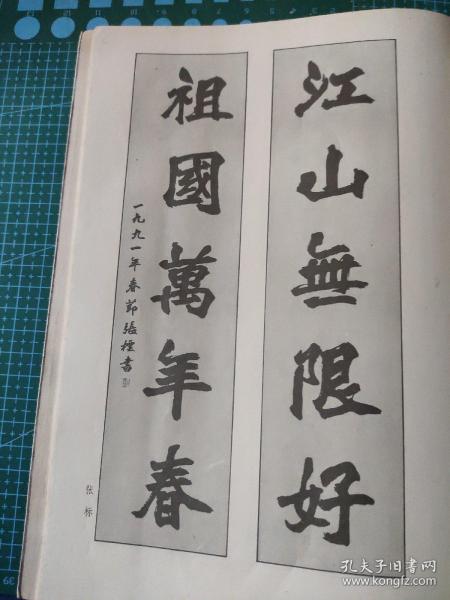 江山無限好
祖國萬年春
一九九一年春節張標書
张标
孔夫子旧书网
www.kongfz.com